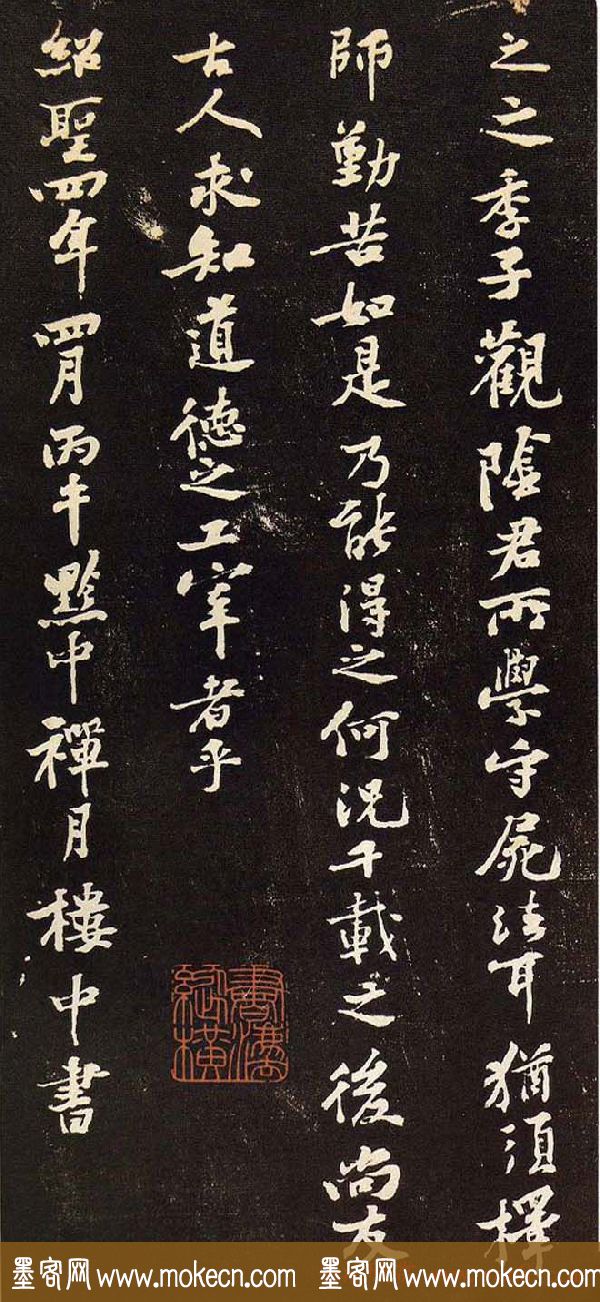 之之季子觀陰君所學守屍法耳猶須擇
師勤苦如是乃能得之何況千載之後尚友
古人求知道德之工宰者乎
紹聖四年四月丙午黔中禪月樓中書
墨客网 www.mokecn.com 墨客网 www.mokecn.com